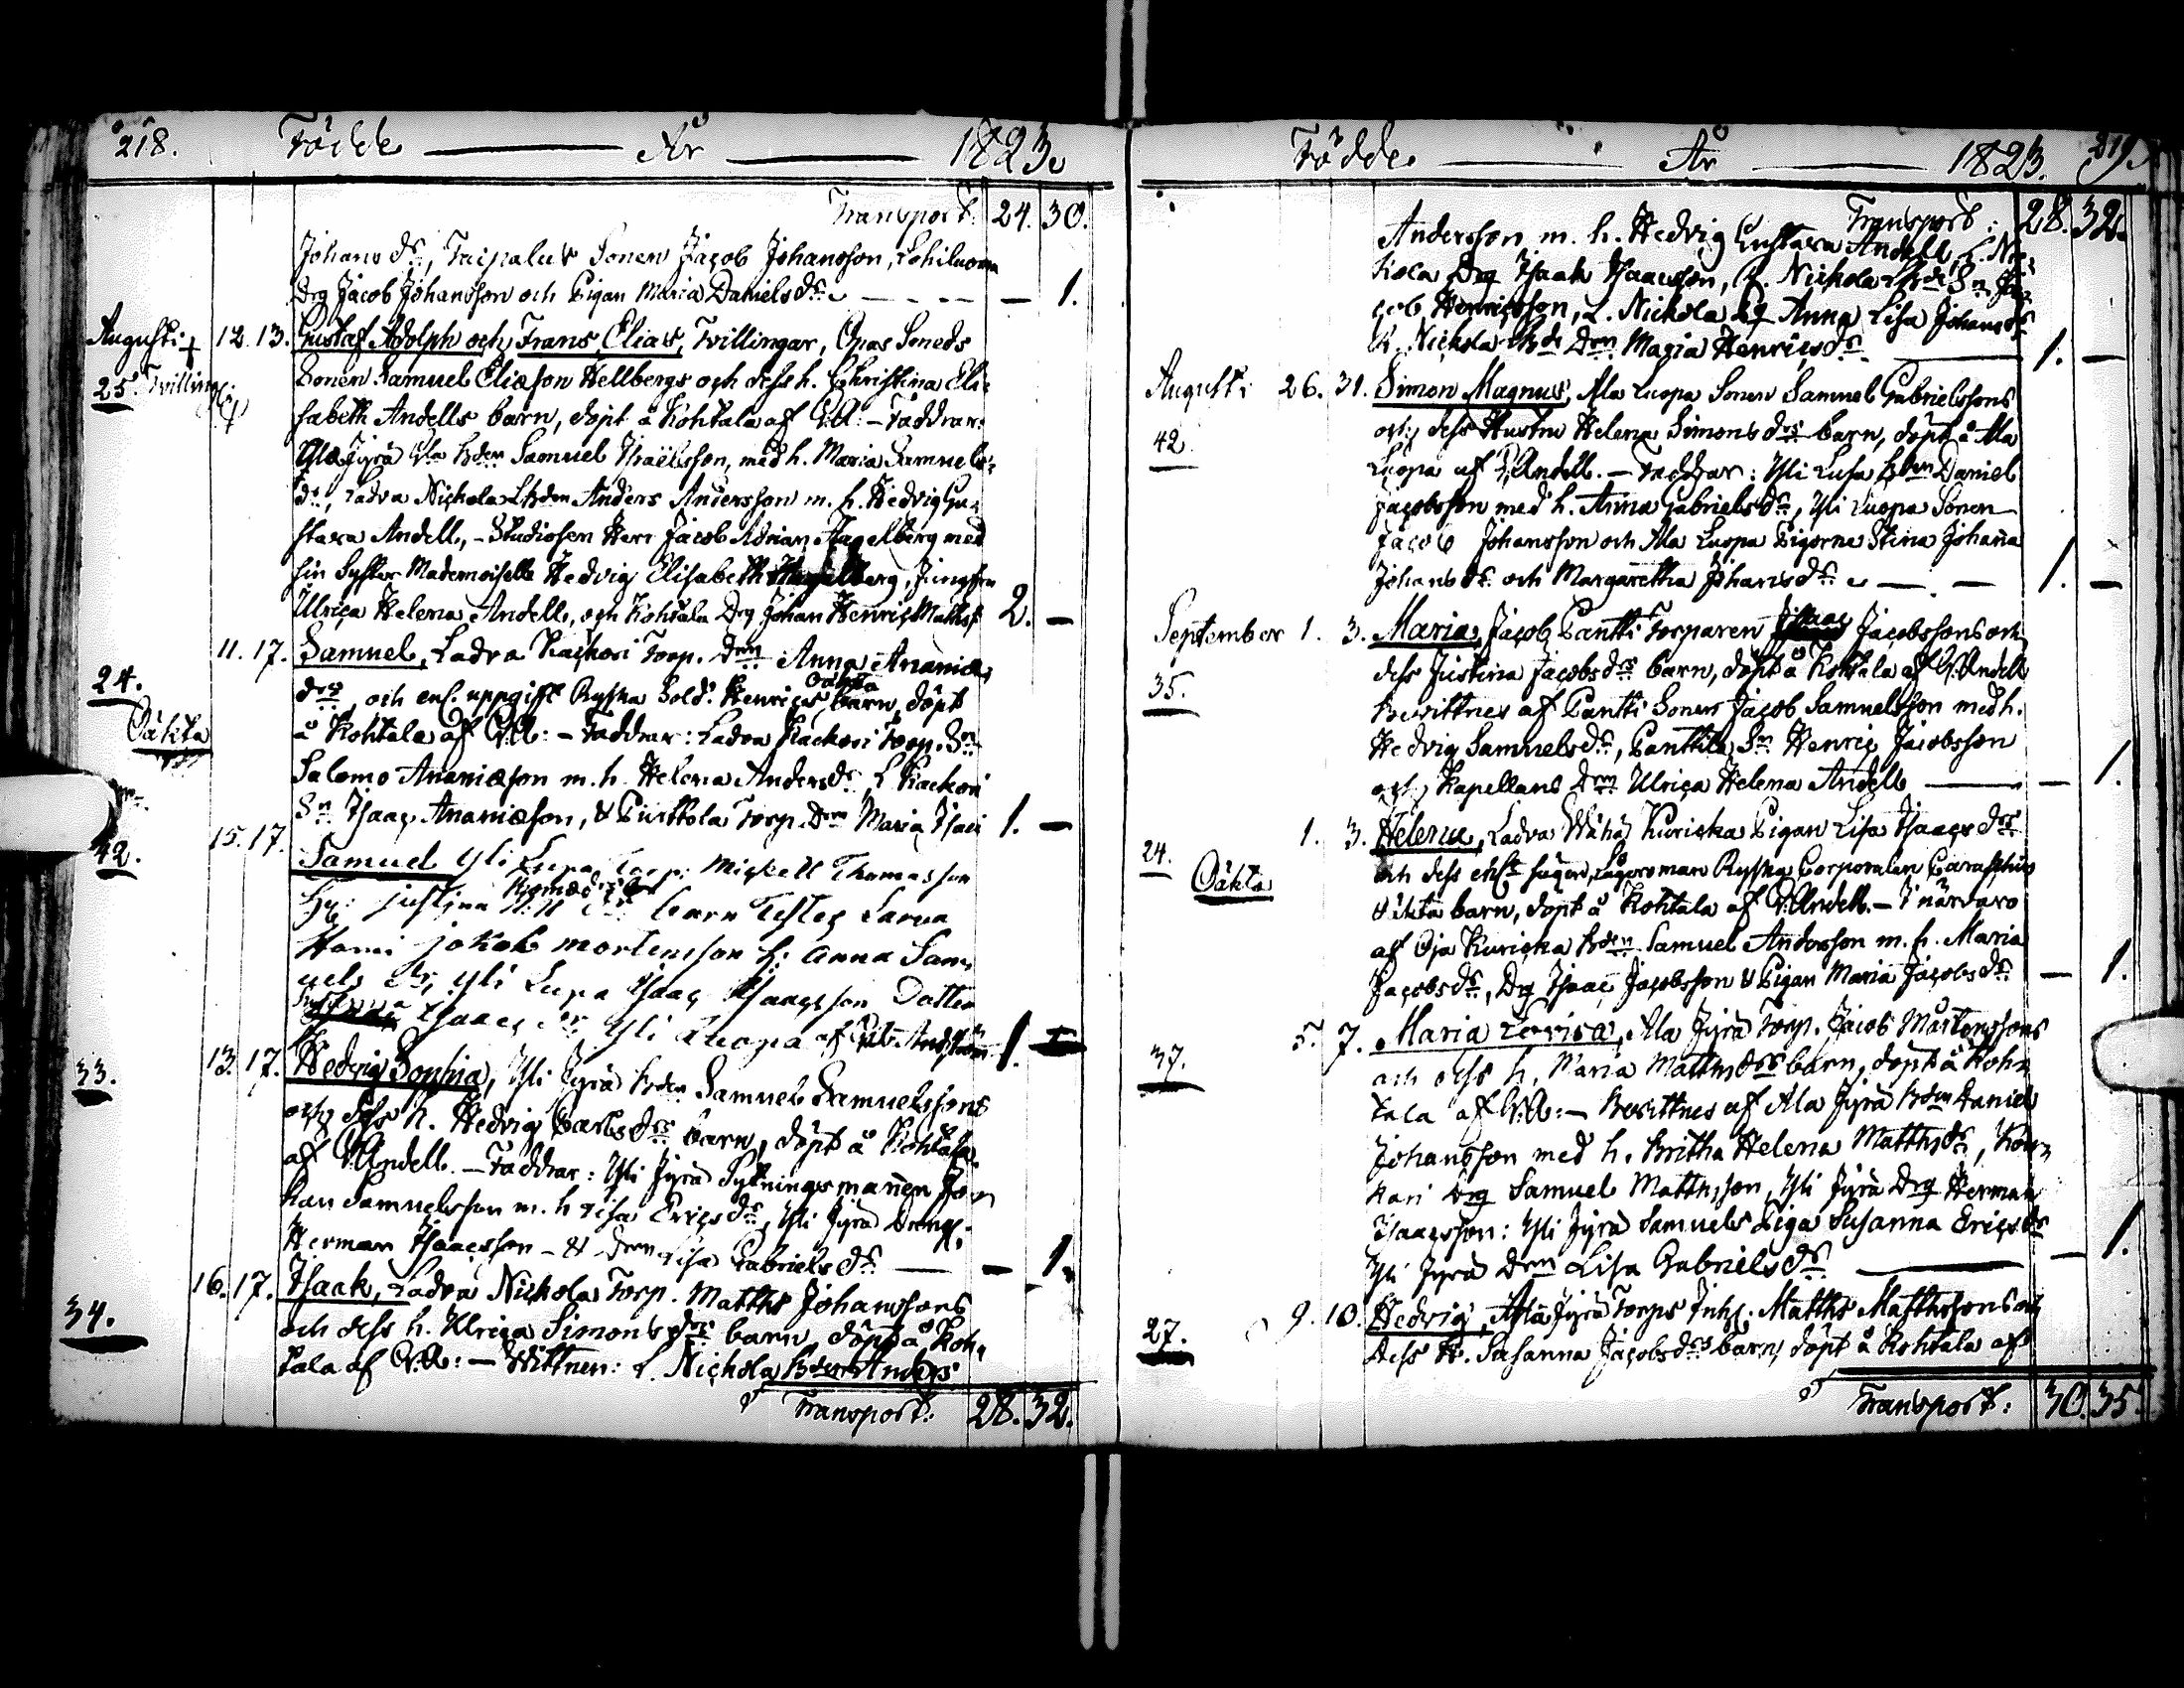 218. Födde År 1823.
Transport: 24. 30.
Johans dr, Taipalus Sonen Jacob Johansson,
Drg Jacob Johansson och Pigan Maria Daniels dr. — 1.
Augusti 12. 13. Gustaf Adolph och Frans Elias, Tvillingar, Opas Soneds
25. Tvilling Sonen Samuel Eliæson Hellbergs och dess h. Christina Eli-
sabeth Andells barn, döpt å Kohtala af V.A: – Faddrar:
Jyrä Samuel Israëlsson, med h. Maria Samuels
dr, Ladva Nickola Anders Andersson m. h. Hedvig Gu-
stava Andell, – Studiosen Herr Jacob Adrian Hagelberg med
sin Syster Mademoiselle Hedvig Elisabeth Hagelberg, Jungfru
Ulrica Helena Andell, och Kohtala Drg Johan Henric Mathss 2. —
11. 17. Samuel, Ladva Kackori Torp. Drn Anna Ananiæ
24. drs, och enl. uppgifft Ryska Sold. Henrics barn, döpt
Oäkta
Oäkta å Kohtala af V.A: – Faddrar: Ladva Kackori Torp. Sn
Salomo Ananiæson m. h. Helena Anders dr, L Kackori
Sn Isaac Ananiæson, & Purttola Torp. Drn Maria Isaci 1. —
42. 15. 17. Samuel Yli Lupa Torp: Mickell Thomasson
Hu: justina barn Testes Larva
Hami jakob mortensson h: anna Sam
uels dr, Yli Lupa Isaac Isaacsson Dotter
Isaacs dr Yli Luopa af 1. —
33. 13. 17. Hedvig Sophia, Yli Jyrä Bden Samuel Samuelssons
och dess h. Hedvig Carls drs barn, döpt å Kohtala
af V.Andell. – Faddrar: Yli Jyrä Sytningsmannen Jo-
han Samuelsson m. h Lisa Erics dr, Yli Jyrä Dreng
Herman Isaacsson – & Drn Lisa Gabriels dr — — 1.
34. 16. 17. Isaak, Ladva Nickola Torp. Matths Johanssons
och dess h. Ulrica Simons drs barn, döpt å Koh-
tala af V.A: – Wittnen: L. Nickola Bden Anders
Transport: 28. 32.
Födde År 1823. 219.
Transport: 28. 32.
Andersson m. h. Hedvig Gustava Andell, L. Nic-
kola Drg Isaak Isaacsson, L. Nickola Sn Ja-
cob Henricsson, L. Nickola Anna Lisa Johans dr
L. Nickola Drn Maria Henrics dr — 1. —
Augusti 26. 31. Simon Magnus, Ala Luopa Sonen Samuel Gabrielssons
42. och dess Hustru Helena Simons drs barn, döpt å Ala
Luopa af V.Andell. – Faddrar: Yli Luopa Bden Daniel
Jacobsson med h. Anna Gabriels dr, Yli Luopa Sonen
Jacob Johansson och Ala Luopa Pigorne Stina Johanna
Johans dr och Margaretha Johans dr — — 1. —
September 1. 3. Maria, Jacob Pantti Torparen Isaac Jacobssons och
35. dess Justina Jacobs drs barn, döpt å Kohtala af V.Andell
Bevittnes af Pantti Sonen Jacob Samuelsson med h.
Hedvig Samuels dr, Panttila Sn Henric Jacobsson
och Kapellans Drn Ulrica Helena Andell — — 1.
24. 1. 3. Helena, Ladva Wähä Kuricka Pigan Lisa Isaacs drs
Oäkta och dess Lägersman Ryska Corporalen
oäkta barn, döpt å Kohtala af V.Andell. – I närvaro
af Oja Kuricka Bden Samuel Andersson m. h. Maria
Jacobs dr, Drg Isaac Jacobsson & Pigan Maria Jacobs dr — 1.
37. 5. 7. Maria Lovisa, Ala Jyrä Torp. Jacob Mårtenssons
och dess h. Maria Matths drs barn, döpt å Koh-
tala af V.A: – Bevittnes af Ala Jyrä Bden Daniel
Johansson med h. Britha Helena Matths dr, Kou-
kari Drg Samuel Matthsson, Yli Jyrä Drg Herman
Isaacsson: Yli Jyrä Samuels Piga Susanna Erics dr
Yli Jyrä Drn Lisa Gabriels dr — — 1.
27. 9. 10. Hedvig, Ala Jyrä Torps Inhs. Matths Matthssons och
dess H. Susanna Jacobs drs barn, döpt å Kohtala af
Transport: 30. 35.